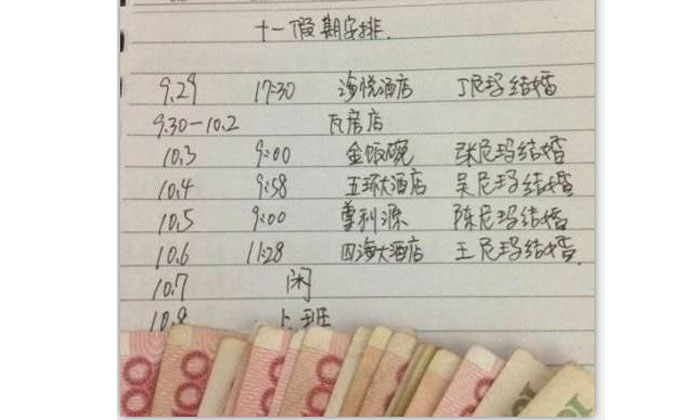 十一假期安排
9.29 17:30 海悦酒店 丁尼玛结婚
9.30-10.2 瓦房店
10.3 9:00 金饭碗 张尼玛结婚
10.4 9:58 五环大酒店 吴尼玛结婚
10.5 9:00 尊利源 陈尼玛结婚
10.6 11:28 四海大酒店 王尼玛结婚
10.7 闲
10.8 上班
100
100
100
100